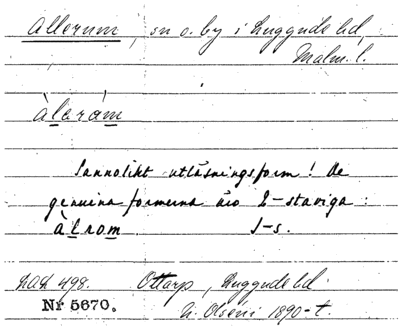 Allerum, sn o. by i Luggude hd,
Malm. l.
àlerám
Sannolikt utläsningsform! De
genuina formerna äro 2-staviga:
àlrom J-s.
LAL 498. Ottarp, Luggude hd.
Nr 5670. N. Olséni 1890-t.